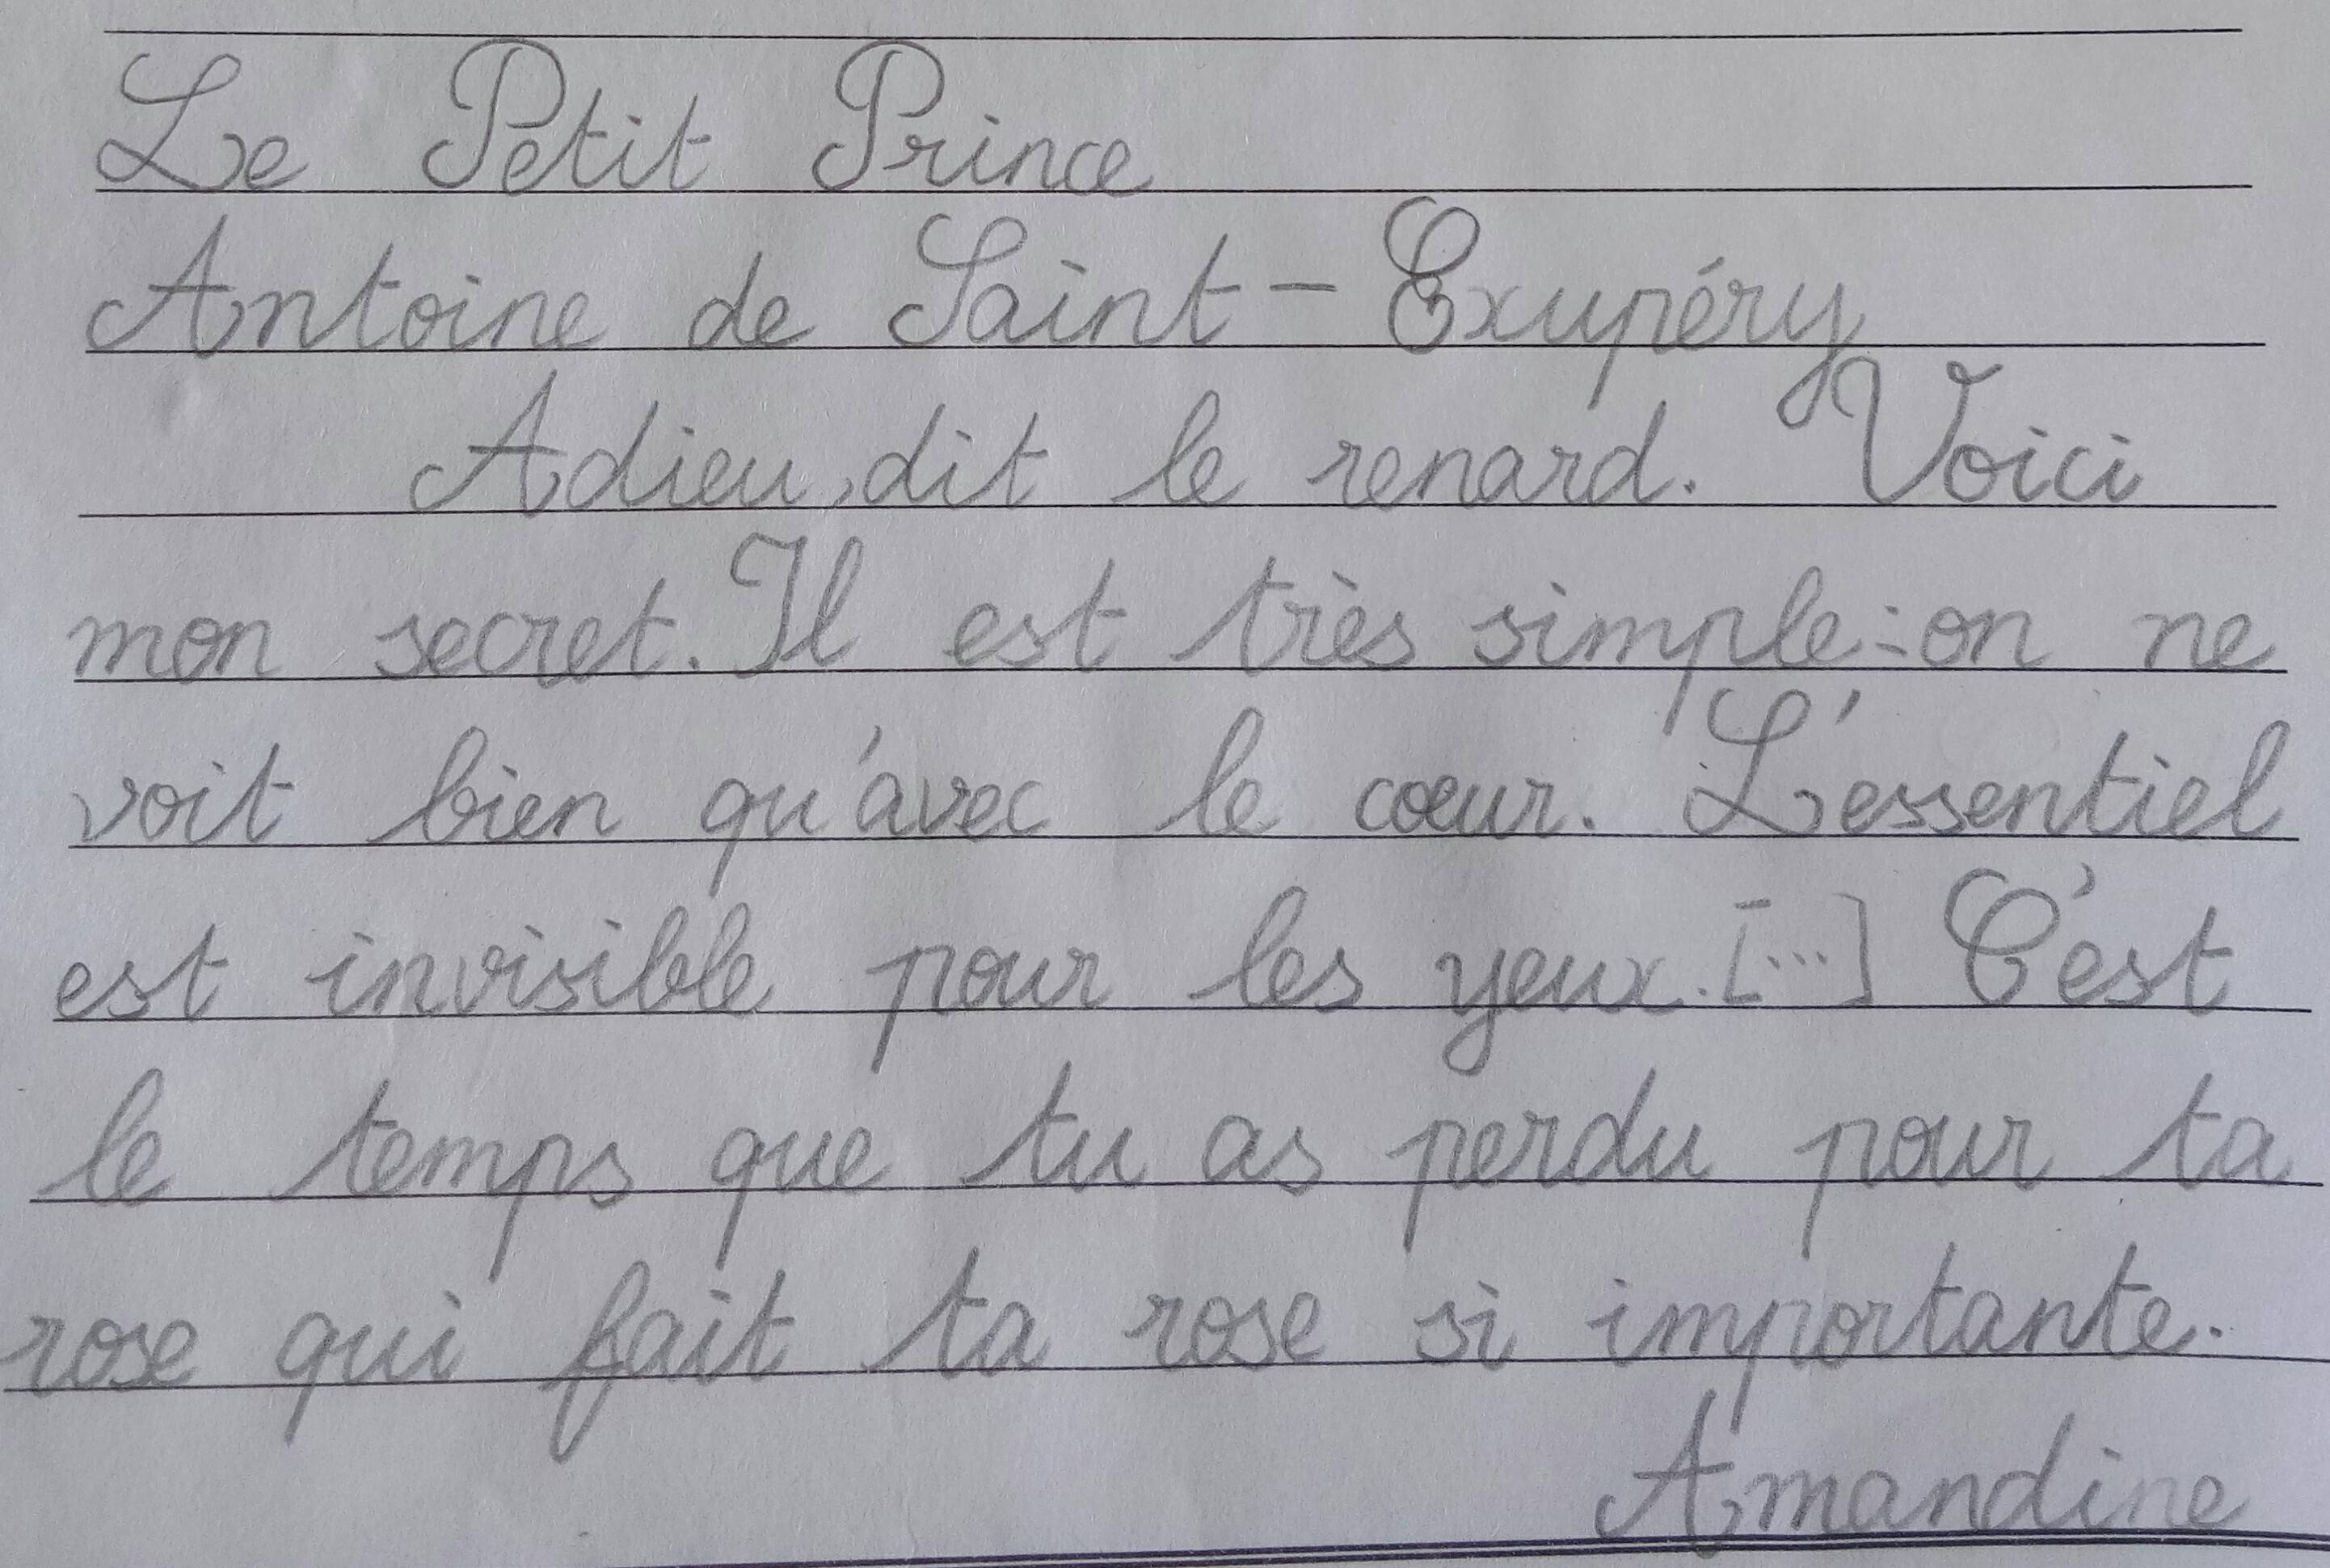 Le Petit Prince
Antoine de Saint-Exupéry
Adieu, dit le renard. Voici
mon secret. Il est très simple : on ne
voit bien qu'avec le cœur. L'essentiel
est invisible pour les yeux. [...] C'est
le temps que tu as perdu pour ta
rose qui fait ta rose si importante.
Amandine